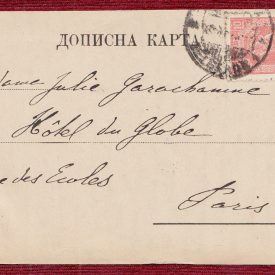 ДОПИСНА КАРТА
Julie Garachanine
Hôtel du Globe
des Ecoles
Paris